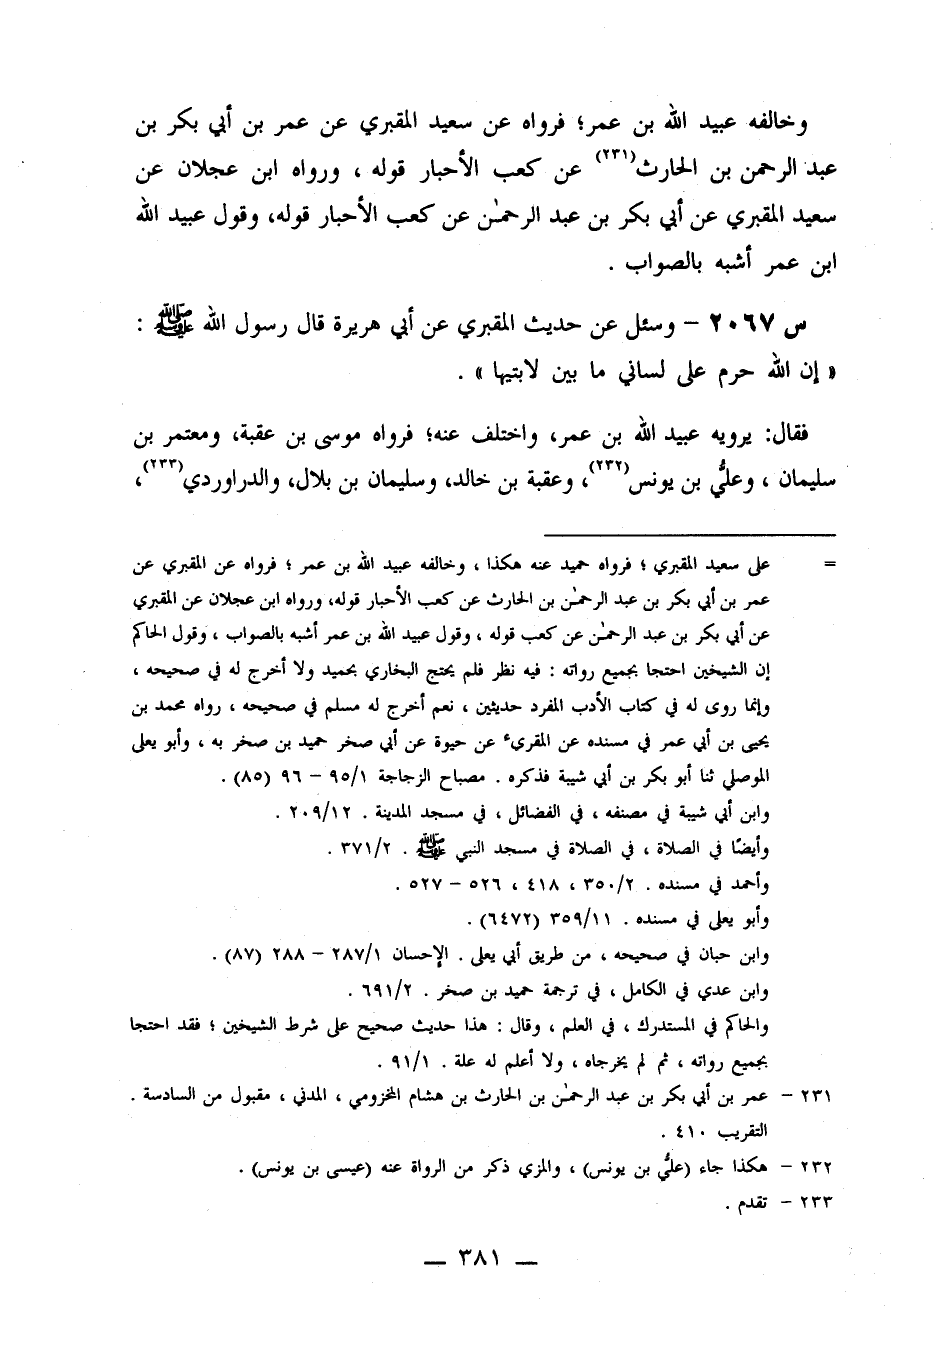 وخالفه عبيد الله بن عمر؛ فرواه عن سعيد المقبري عن عمر بن أبي بكر بن
عبد الرحمن بن الحارث(٢٣١) عن كعب الأحبار قوله ، ورواه ابن عجلان عن
سعيد المقبري عن أبي بكر بن عبد الرحمٰن عن كعب الأحبار قوله، وقول عبيد الله
ابن عمر أشبه بالصواب .
س ٢٠٦٧ – وسئل عن حديث المقبري عن أبي هريرة قال رسول الله ﷺ :
« إن الله حرم على لساني ما بين لابتيها » .
فقال: يرويه عبيد الله بن عمر، واختلف عنه؛ فرواه موسى بن عقبة، ومعتمر بن
سليمان ، وعليُّ بن يونس(٢٣٢)، وعقبة بن خالد، وسليمان بن بلال، والدراوردي(٢٣٣)،
= على سعيد المقبري ؛ فرواه حميد عنه هكذا ، وخالفه عبيد الله بن عمر ؛ فرواه عن المقبري عن
عمر بن أبي بكر بن عبد الرحمٰن بن الحارث عن كعب الأحبار قوله، ورواه ابن عجلان عن المقبري
عن أبي بكر بن عبد الرحمٰن عن كعب قوله ، وقول عبيد الله بن عمر أشبه بالصواب ، وقول الحاكم
إن الشيخين احتجا بجميع رواته : فيه نظر فلم يحتج البخاري بحميد ولا أخرج له في صحيحه ،
وإنما روى له في كتاب الأدب المفرد حديثين ، نعم أخرج له مسلم في صحيحه ، رواه محمد بن
يحيى بن أبي عمر في مسنده عن المقريء عن حيوة عن أبي صخر حميد بن صخر به ، وأبو يعلى
الموصلي ثنا أبو بكر بن أبي شيبة فذكره . مصباح الزجاجة ٩٥/١ – ٩٦ (٨٥) .
وابن أبي شيبة في مصنفه ، في الفضائل ، في مسجد المدينة . ٢٠٩/١٢ .
وأيضًا في الصلاة ، في الصلاة في مسجد النبي ﷺ . ٣٧١/٢ .
وأحمد في مسنده . ٣٥٠/٢ ، ٤١٨ ، ٥٢٦ – ٥٢٧ .
وأبو يعلى في مسنده . ٣٥٩/١١ (٦٤٧٢) .
وابن حبان في صحيحه ، من طريق أبي يعلى . الإحسان ٢٨٧/١ – ٢٨٨ (٨٧) .
وابن عدي في الكامل ، في ترجمة حميد بن صخر . ٦٩١/٢ .
والحاكم في المستدرك ، في العلم ، وقال : هذا حديث صحيح على شرط الشيخين ؛ فقد احتجا
بجميع رواته ، ثم لم يخرجاه ، ولا أعلم له علة . ٩١/١ .
٢٣١ – عمر بن أبي بكر بن عبد الرحمٰن بن الحارث بن هشام المخزومي ، المدني ، مقبول من السادسة .
التقريب ٤١٠ .
٢٣٢ – هكذا جاء (عليُّ بن يونس) ، والمزي ذكر من الرواة عنه (عيسى بن يونس) .
٢٣٣ – تقدم .
— ٣٨١ —